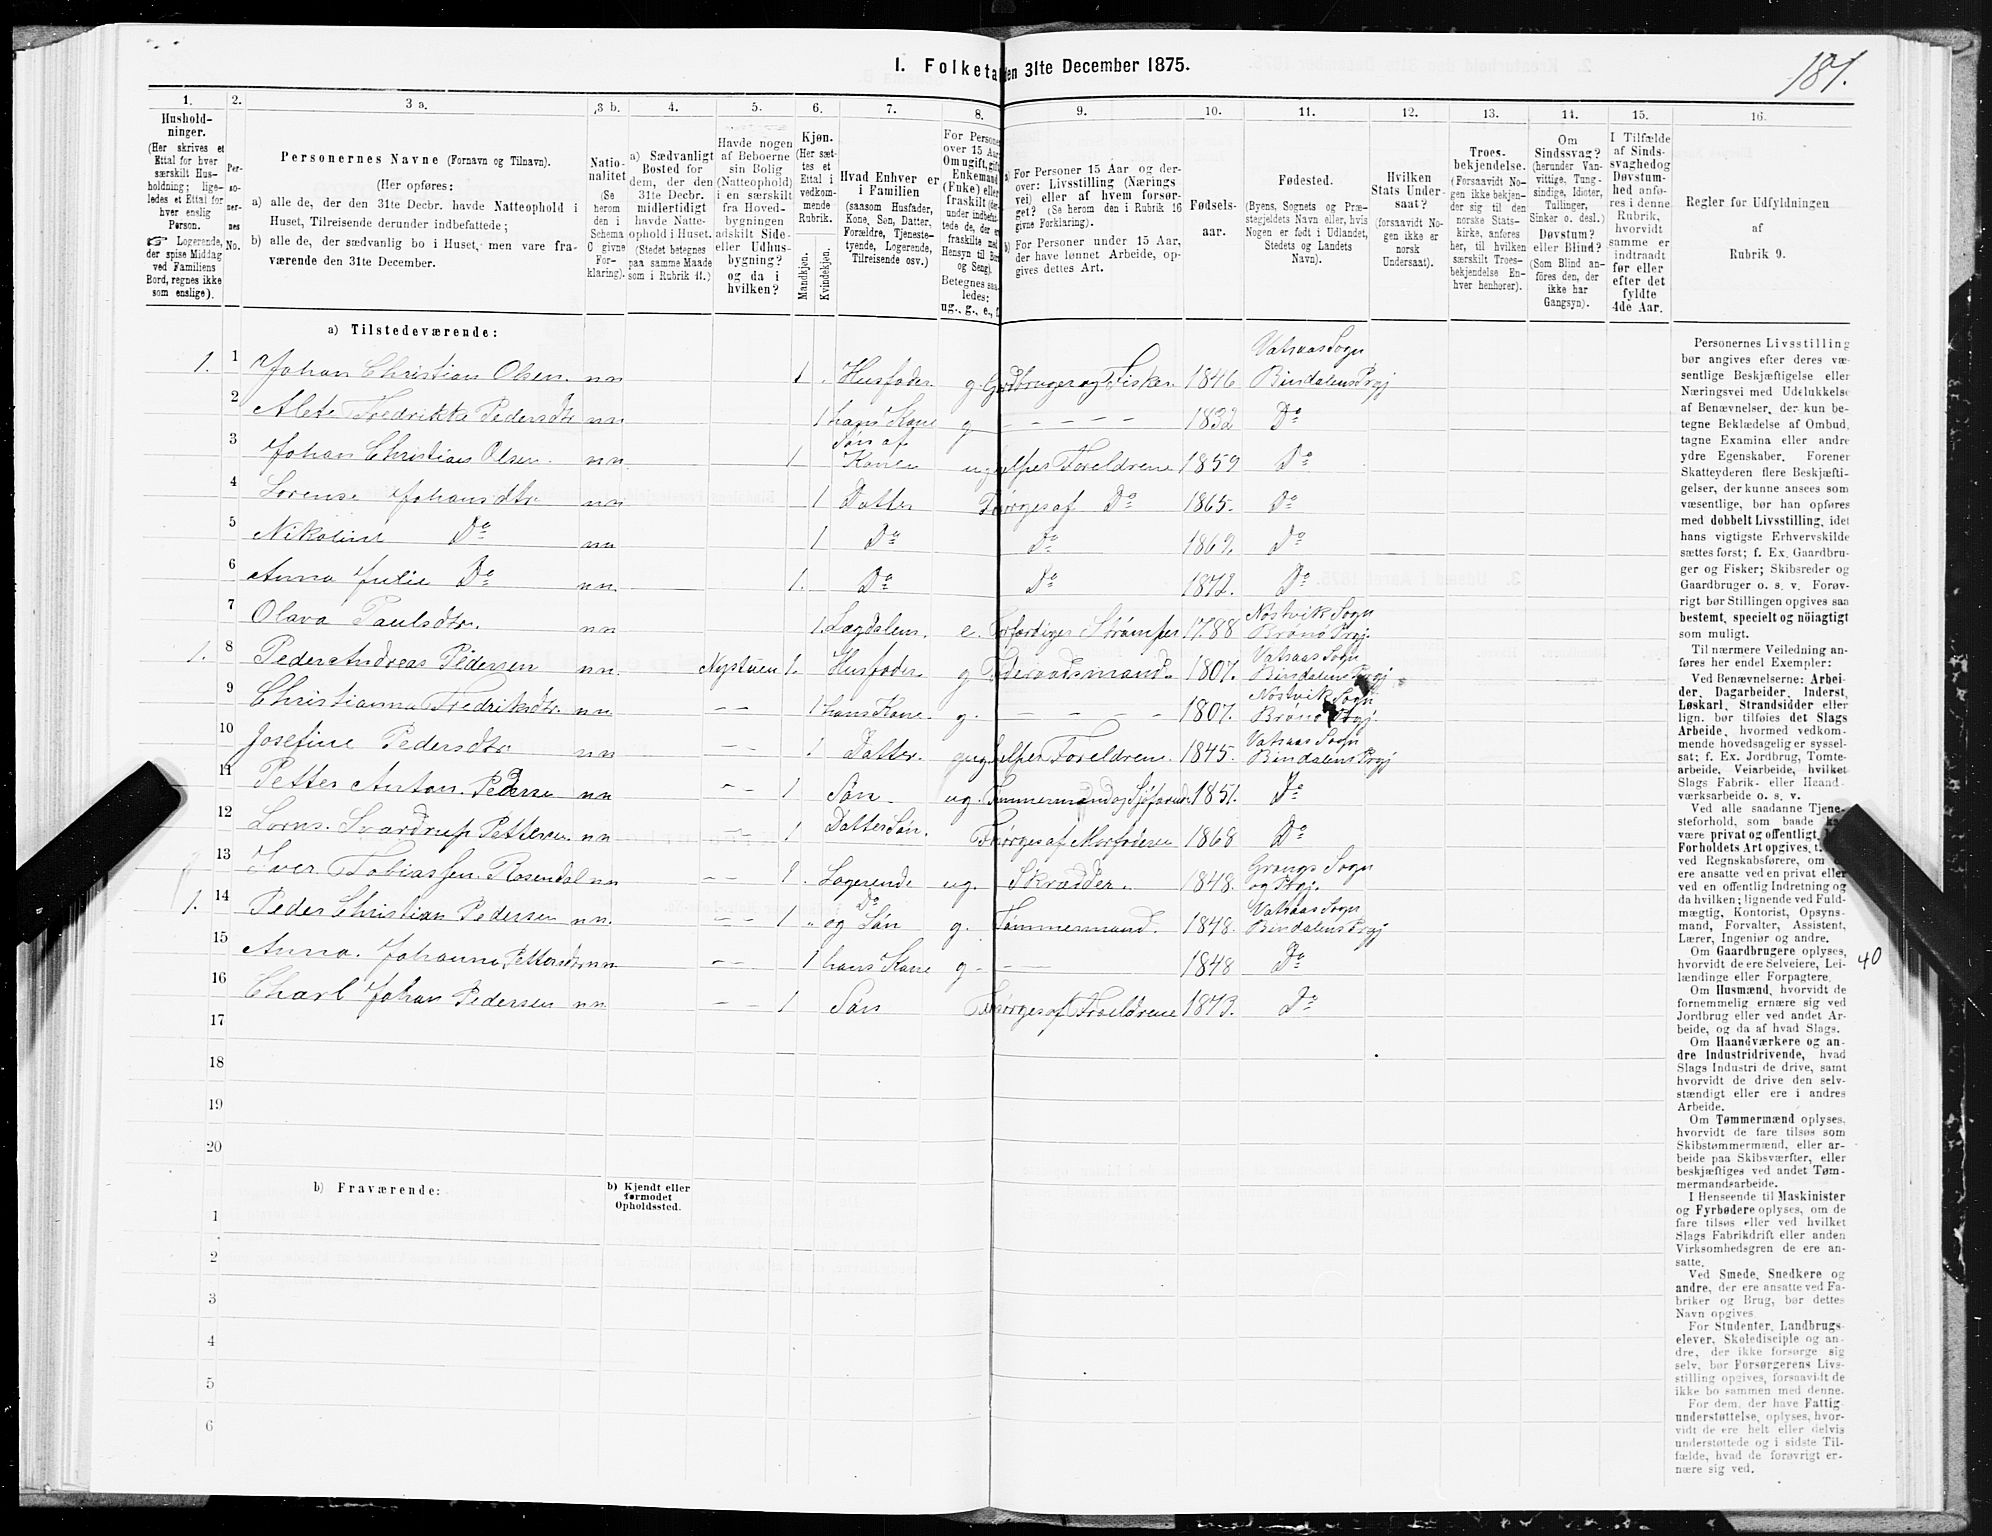 I. Folketa en 31te December 1875.
181.
1.
Hushold-
ninger.
(Her skrives et
Ettal for hver
særskilt Hus-
holdning; lige-
ledes et Ettal for
hver enslig
Person.
☞ Logerende,
der spise Middag
ved Familiens
Bord, regnes ikke
som enslige).
2.
Per-
so-
ner-
nes
No.
3 a.
Personernes Navne (Fornavn og Tilnavn).
(Her opføres:
a) alle de, der den 31te Decbr. havde Natteophold i
Huset, Tilreisende derunder indbefattede;
b) alle de, der sædvanlig bo i Huset, men vare fra-
værende den 31te December.
3 b.
Natio-
nalitet
(Se
herom
den i
Schema
C givne
For-
klaring).
4.
a) Sædvanligt
Bosted for
dem, der den
31te Decbr.
midlertidigt
havde Natte-
ophold i Huset.
(Stedet betegnes
paa samme Maade
som i Rubrik 11.)
5.
Havde nogen
af Beboerne
sin Bolig
(Natteophold)
i en særskilt
fra Hoved-
bygningen
adskilt Side-
eller Udhus-
bygning?
og da i
hvilken?
6.
Kjøn.
(Her sæt-
tes et
Ettal i
vedkom-
mende
Rubrik.
Mandkjøn.
Kvindekjøn.
7.
Hvad Enhver er
i Familien
(saasom Husfader,
Kone, Søn, Datter,
Forældre, Tjeneste-
tyende, Logerende,
Tilreisende osv.)
8.
For Person
over 15 Aar
Om ugift, gift
Enkemand
(Enke) eller
fraskilt (der-
under indbefat-
tede de, der er
fraskilte med
Hensyn til Bor
og Seng).
Betegnes saa-
ledes:
ug., g., e., f.
9.
a) For Personer 15 Aar og der-
over: Livsstilling (Nærings
vei) eller af hvem forsør-
get? (Se herom den i Rubrik 16
givne Forklaring).
b) For Personer under 15 Aar,
der have lønnet Arbeide, op-
gives dettes Art.
10.
Fødsels-
aar.
11.
Fødested.
(Byens, Sognets og Præ-
stegjeldets Navn eller, hvis
Nogen er født i Udlandet,
Stedets og Landets
Navn).
12.
Hvilken
Stats Under-
saat?
(forsaavidt No-
gen ikke er
norsk
Undersaat).
13.
Troes-
bekjendelse.
(Forsaavidt No-
gen ikke bekjen-
der sig til den
norske Stats-
kirke, anføres
her, til hvilken
særskilt Troes-
bekjendelse En-
hver henhører).
14.
Om
Sindssvag?
(herunder Van-
vittige, Tung-
sindige, Idioter,
Tullinger,
Sinker o. desl.)
Døvstum?
eller Blind?
(Som Blind an-
føres den, der
ikke har
Gangsyn).
15.
I Tilfælde
af Sinds-
svaghed og
Døvstum-
hed anfø-
res i denne
Rubrik,
hvorvidt
samme er
indtraadt
før eller
efter det
fyldte
4de Aar.
16.
Regler for Udfyldningen
af
Rubrik 9.
a) Tilstedeværende:
1. 1 Johan Christian Olsen. nn 1 Husfader g. Gardbruger og Fisker 1846 Vatsaas Sogn Bindalens Prgj
2 Alete Fredrikke Pedersdtr nn 1 hans Kone g - - - - - 1832 Do
3 Johan Christian Olsen. nn 1 Søn af Konen ug. hjelper Foreldrene 1859 Do
4 Lorense Johansdtr nn 1 Datter Forsørges af Do 1865. Do
5 Nikoline Do nn 1 Do Do 1869. Do
6 Anna Julie Do nn 1. Do Do 1872. Do
7 Olava Paulsdtr. nn 1. Lægdslem. e. Forfærdiger Strømper 1788 Nøstvik Sogn Brønø Prgj.
1. 8 Peder Andreas Pedersen nn Nystuen 1. Husfader g Føderaadsmand 1807. Vatsaas Sogn Bindalens Prgj
9 Christianna Fredriksdtr. nn - - 1 hans Kone. g. - - - - 1807. Nøstvik Sogn Brønø Prgj.
10 Josefine Pedersdtr nn - - 1 Datter. ug hjelper Foreldrene 1845. Vatsaas Sogn Bindalens Prgj
11 Petter Anton. Pederse nn - - 1 Søn ug. Tømmermand og Sjøfarend. 1851. Do
12 Lorns. Svardrup Pettersen. nn - - 1 Datter Søn. Forsørges af Morfaderen 1868 Do
13 Iver Tobiassen Rosendal nn - - 1. Logerende ug. Skrædder. 1848. Grongs Sogn og Prgj.
1. 14 Peder Christian Pedersen nn. - - 1 Do og Søn g. Tømmermand. 1848. Vatsaas Sogn Bindalens Prgj
15 Anna. Johanna Pettersdtr nn - - 1 hans Kone g - - 1848 Do
16 Charl Johan Pedersen nn - - 1 Søn Forsørges af Forældrene 1873. Do
17
18
19
20
b) Fraværende:
b) Kjendt eller
formodet
Opholdssted.
1
2
3
4
5
6
Personernes Livsstilling
bør angives efter deres væ-
sentlige Beskjæftigelse eller
Næringsvei med Udelukkelse
af Benævnelser, der kun be-
tegne Beklædelse af Ombud,
tagne Examina eller andre
ydre Egenskaber. Forener
Skatteyderen flere Beskjæfti-
gelser, der kunne ansees som
væsentlige, bør han opføres
med dobbelt Livsstilling, idet
hans vigtigste Erhvervskilde
sættes først; f. Ex. Gaardbru-
ger og Fisker; Skibsreder og
Gaardbruger o. s. v. Forøv-
rigt bør Stillingen opgives saa
bestemt, specielt og nöiagtigt
som muligt.
Til nærmere Veiledning an-
føres her endel Exempler:
Ved Benævnelserne: Arbei-
der, Dagarbeider, Inderst,
Løskarl, Strandsidder eller
lign. bør tilføies det Slags
Arbeide, hvormed vedkom-
mende hovedsagelig er syssel-
sat; f. Ex. Jordbrug, Tomte-
arbeide, Veiarbeide, hvilket
Slags Fabrik- eller Haand-
værksarbeide o. s. v.
Ved alle saadanne Tjene-
steforhold, som baade
være privat og offentligt,
Forholdets Art opgives,
ved Regnskabsførere, om
ere ansatte ved en privat eller
ved en offentlig Indretning og
da hvilken; lignende ved Fuld-
mægtig, Kontorist, Opsyns-
mand, Forvalter, Assistent,
Lærer, Ingeniør og andre.
Om Gaardbrugere oplyses,
hvorvidt de ere Selveiere, Lei-
lændinge eller Forpagtere.
40
Om Husmænd, hvorvidt de
fornemmelig ernære sig ved
Jordbrug eller ved andet Ar-
beide, og da af hvad Slags.
Om Haandværkere og an-
dre Industridrivende, hvad
Slags Industri de drive, samt
hvorvidt de drive den selv-
stændigt eller ere i andres
Arbeide.
Om Tømmermænd oplyses,
hvorvidt de fare tilsøs som
Skibstømmermænd, eller ar-
beide paa Skibsværfter, eller
beskjæftiges ved andet Tøm-
mermandsarbeide.
I Henseende til Maskinister
og Fyrbødere oplyses, om de
fare tilsøs eller ved hvilket
Slags Fabrikdrift eller anden
Virksomhedsgren de ere an-
satte.
Ved Smede, Snedkere og
andre, der ere ansatte ved Fa-
briker og Brug, bør dettes
Navn opgives
For Studenter, Landbrugs-
elever, Skoledisciple og an-
dre, der ikke forsørge sig
selv, bør Forsørgerens Livs-
stilling opgives, forsaavidt de
ikke bo sammen med denne.
For dem, der have Fattig-
understøttelse, oplyses, hvor-
vidt de ere helt eller delvis
understøttede og i sidste Til-
fælde, hvad de forøvrigt er-
nære sig ved.